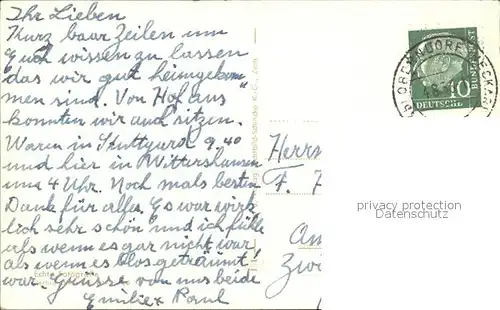 Ihr Lieben
Kurz baar Zeilen um
Euch wissen zu lassen
das wir gut heimgekom
men sind. Von Hof aus
konnten wir auch sitzen.
Waren in Stuttgard 9.40
und hier in Wittershausen
um 4 Uhr. Noch mals besten
Dank für alles. Es war wirk
lich sehr schön und ich fühle
als wenn es gar nicht war
als wenn es blos geträumt!
war. Grüsse von uns beide
Emilie & Paul
Echte Fotografie
10
DEUTSCHE
BUNDESPOST
Herrn
F.
privacy protection
Datenschutz